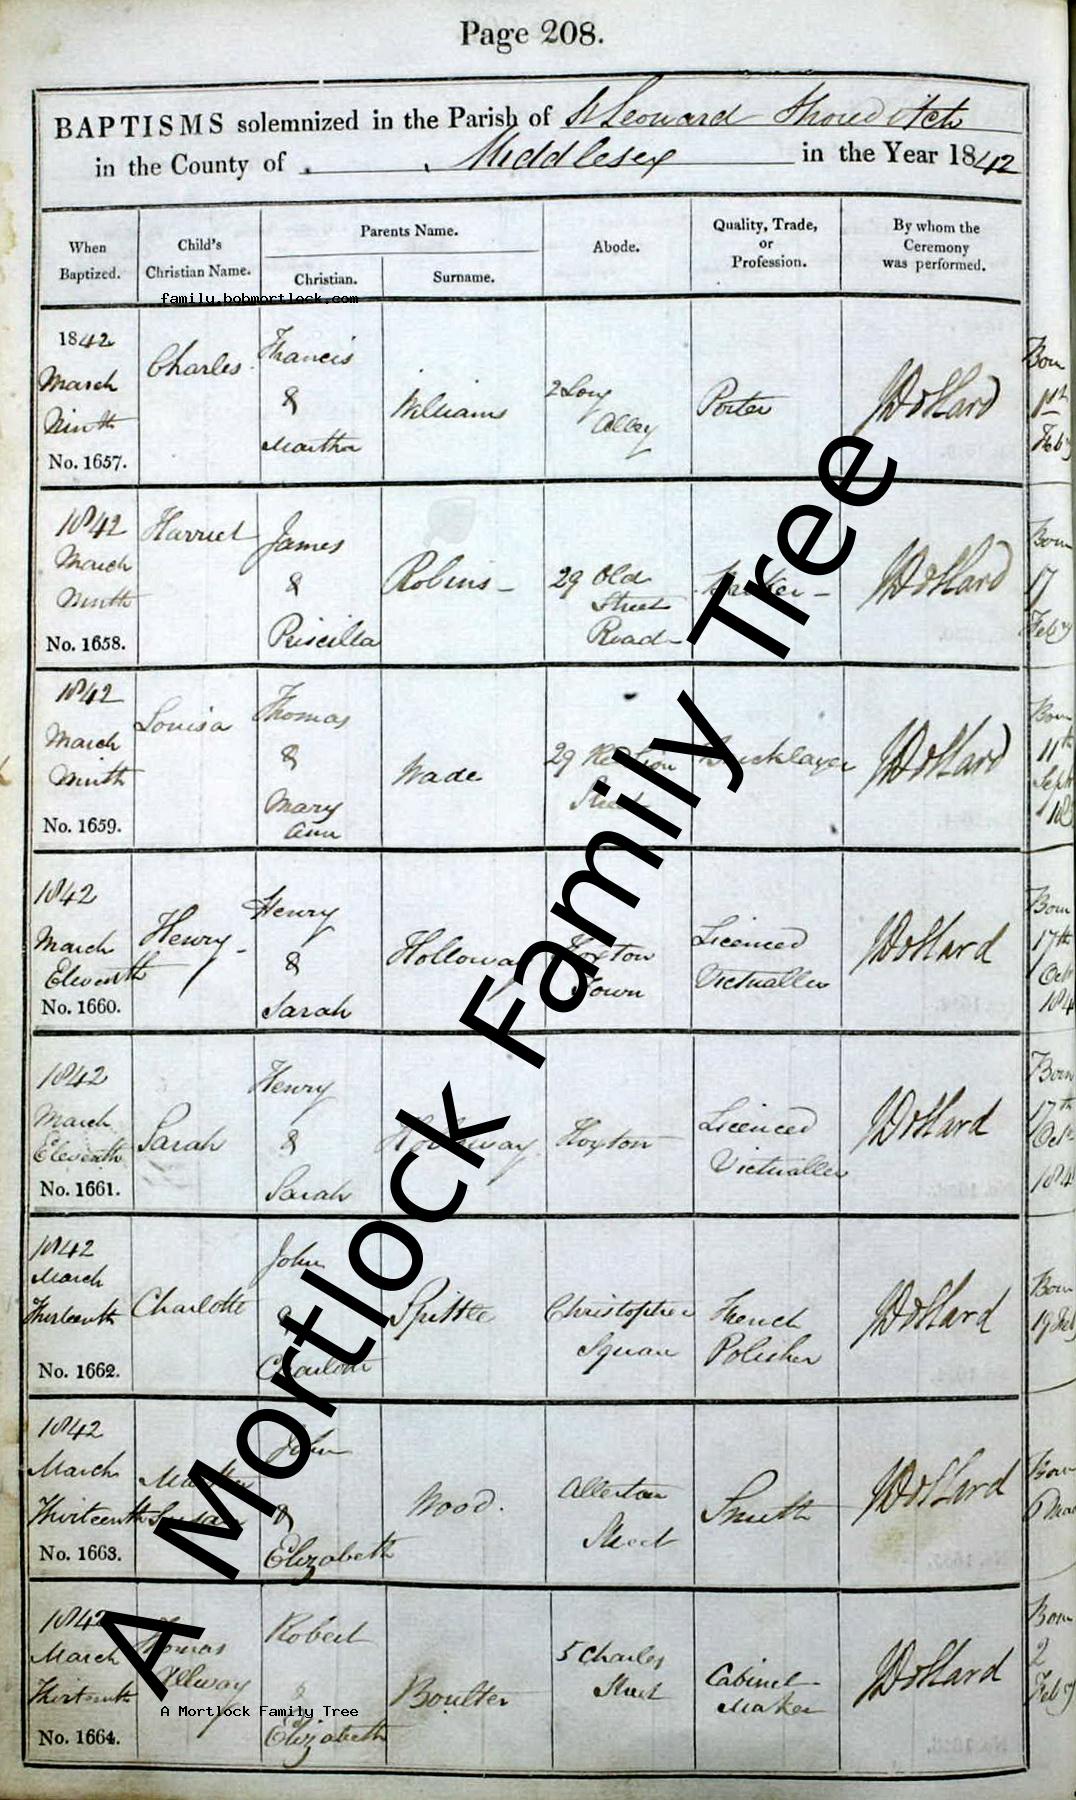 Page 208.
BAPTISMS solemnized in the Parish of St Leonard Shoreditch
in the County of Middlesex in the Year 1842
When Baptized.
Child's Christian Name.
Parents Name.
Christian.
Surname.
Abode.
Quality, Trade, or Profession.
By whom the Ceremony was performed.
family.bobmortlock.com
1842
March
Ninth
No. 1657.
Charles
Francis
&
Martha
Williams
2 Long
Alley
Porter
Born
1st
Feby
1842
March
Ninth
No. 1658.
Harriet
James
&
Priscilla
Robins
29 Old
Street
Road
Born
17
Feby
1842
March
Ninth
No. 1659.
Louisa
Thomas
&
Mary
Ann
Wade
29 Red Lion
Street
Bricklayer
Born
11th
Sept
18
1842
March
Eleventh
No. 1660.
Henry
Henry
&
Sarah
Holloway
Hoxton
Town
Licenced
Victualler
Born
17th
Oct
184
1842
March
Eleventh
No. 1661.
Sarah
Henry
&
Sarah
Holloway
Hoxton
Licenced
Victualler
Born
17th
Oct
184
1842
March
Thirteenth
No. 1662.
Charlotte
John
&
Charlotte
Spittle
Christopher
Square
French
Polisher
Born
1842
March
Thirteenth
No. 1663.
Susan
John
&
Elizabeth
Wood.
Allerton
Street
Smith
Born
6 Mar
1842
March
Thirteenth
No. 1664.
Thomas
Allway
Robert
&
Elizabeth
Boulter
5 Charles
Street
Cabinet
Maker
Born
2
Feby
A Mortlock Family Tree
A Mortlock Family Tree